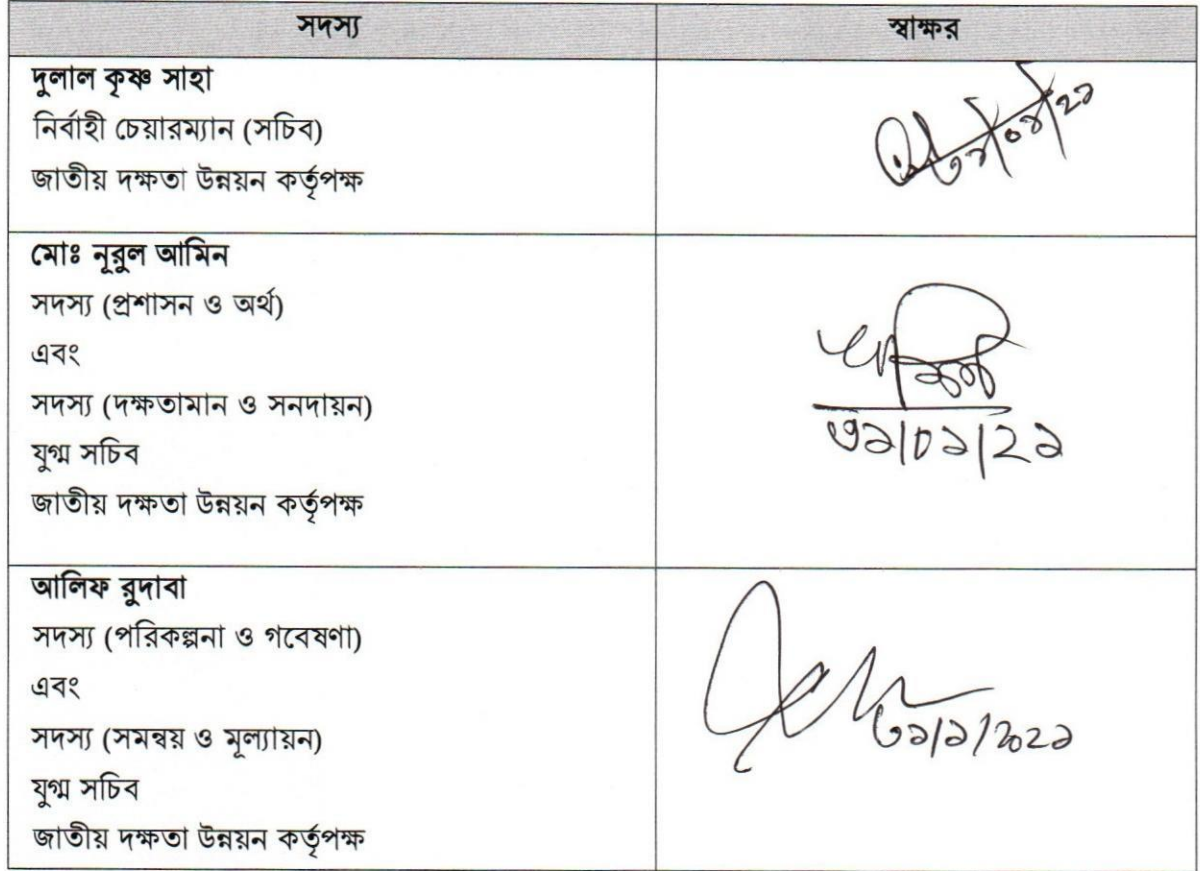 সদস্য স্বাক্ষর
দুলাল কৃষ্ণ সাহা
নির্বাহী চেয়ারম্যান (সচিব)
জাতীয় দক্ষতা উন্নয়ন কর্তৃপক্ষ
৩১/০১/২১
মোঃ নূরুল আমিন
সদস্য (প্রশাসন ও অর্থ)
এবং
সদস্য (দক্ষতামান ও সনদায়ন)
যুগ্ম সচিব
জাতীয় দক্ষতা উন্নয়ন কর্তৃপক্ষ
৩১/০১/২১
আলিফ রুদাবা
সদস্য (পরিকল্পনা ও গবেষণা)
এবং
সদস্য (সমন্বয় ও মূল্যায়ন)
যুগ্ম সচিব
জাতীয় দক্ষতা উন্নয়ন কর্তৃপক্ষ
৩১/১/২০২১